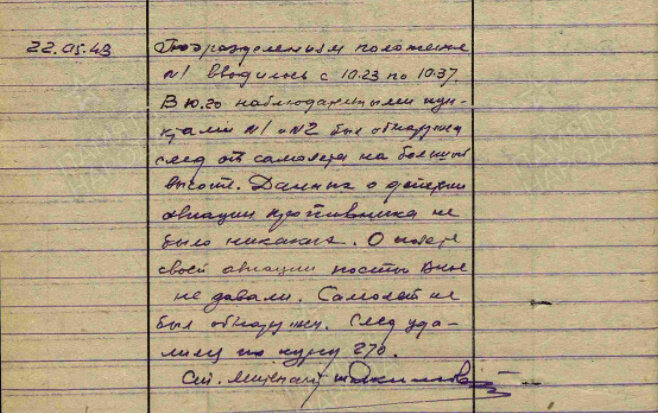 22.05.43 Подразделениям положение
№1 вводилось с 10.23 по 10.37.
В 10.20 наблюдательными пун-
ктами №1 и №2 был обнаружен
след от самолета на большой
высоте. Данных о
авиации противника не
было никаких. О
своей авиации посты ВНОС
не давали. Самолет не
был обнаружен. След уда-
лился по курсу 270.
Ст. лейтенант
ПАМЯТЬ
НАРОДА